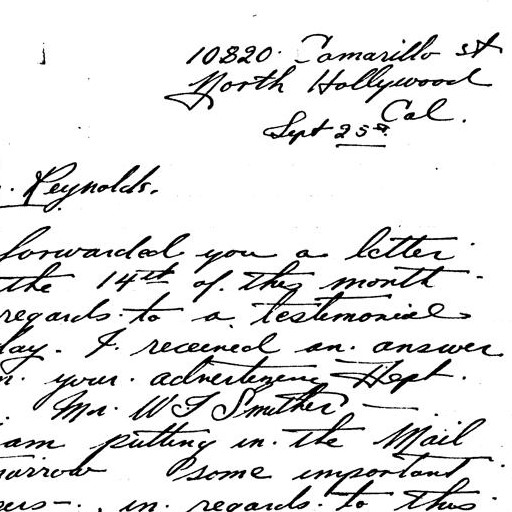 10820. Camarillo st
North Hollywood
Cal.
Sept 25st
. Reynolds.
forwarded you a letter
the 14th of this month
regards to a testimonial
day. I received an answer
your advertizeing Dept.
Mr. W T Smither
am putting in the Mail
some important
in regards to this